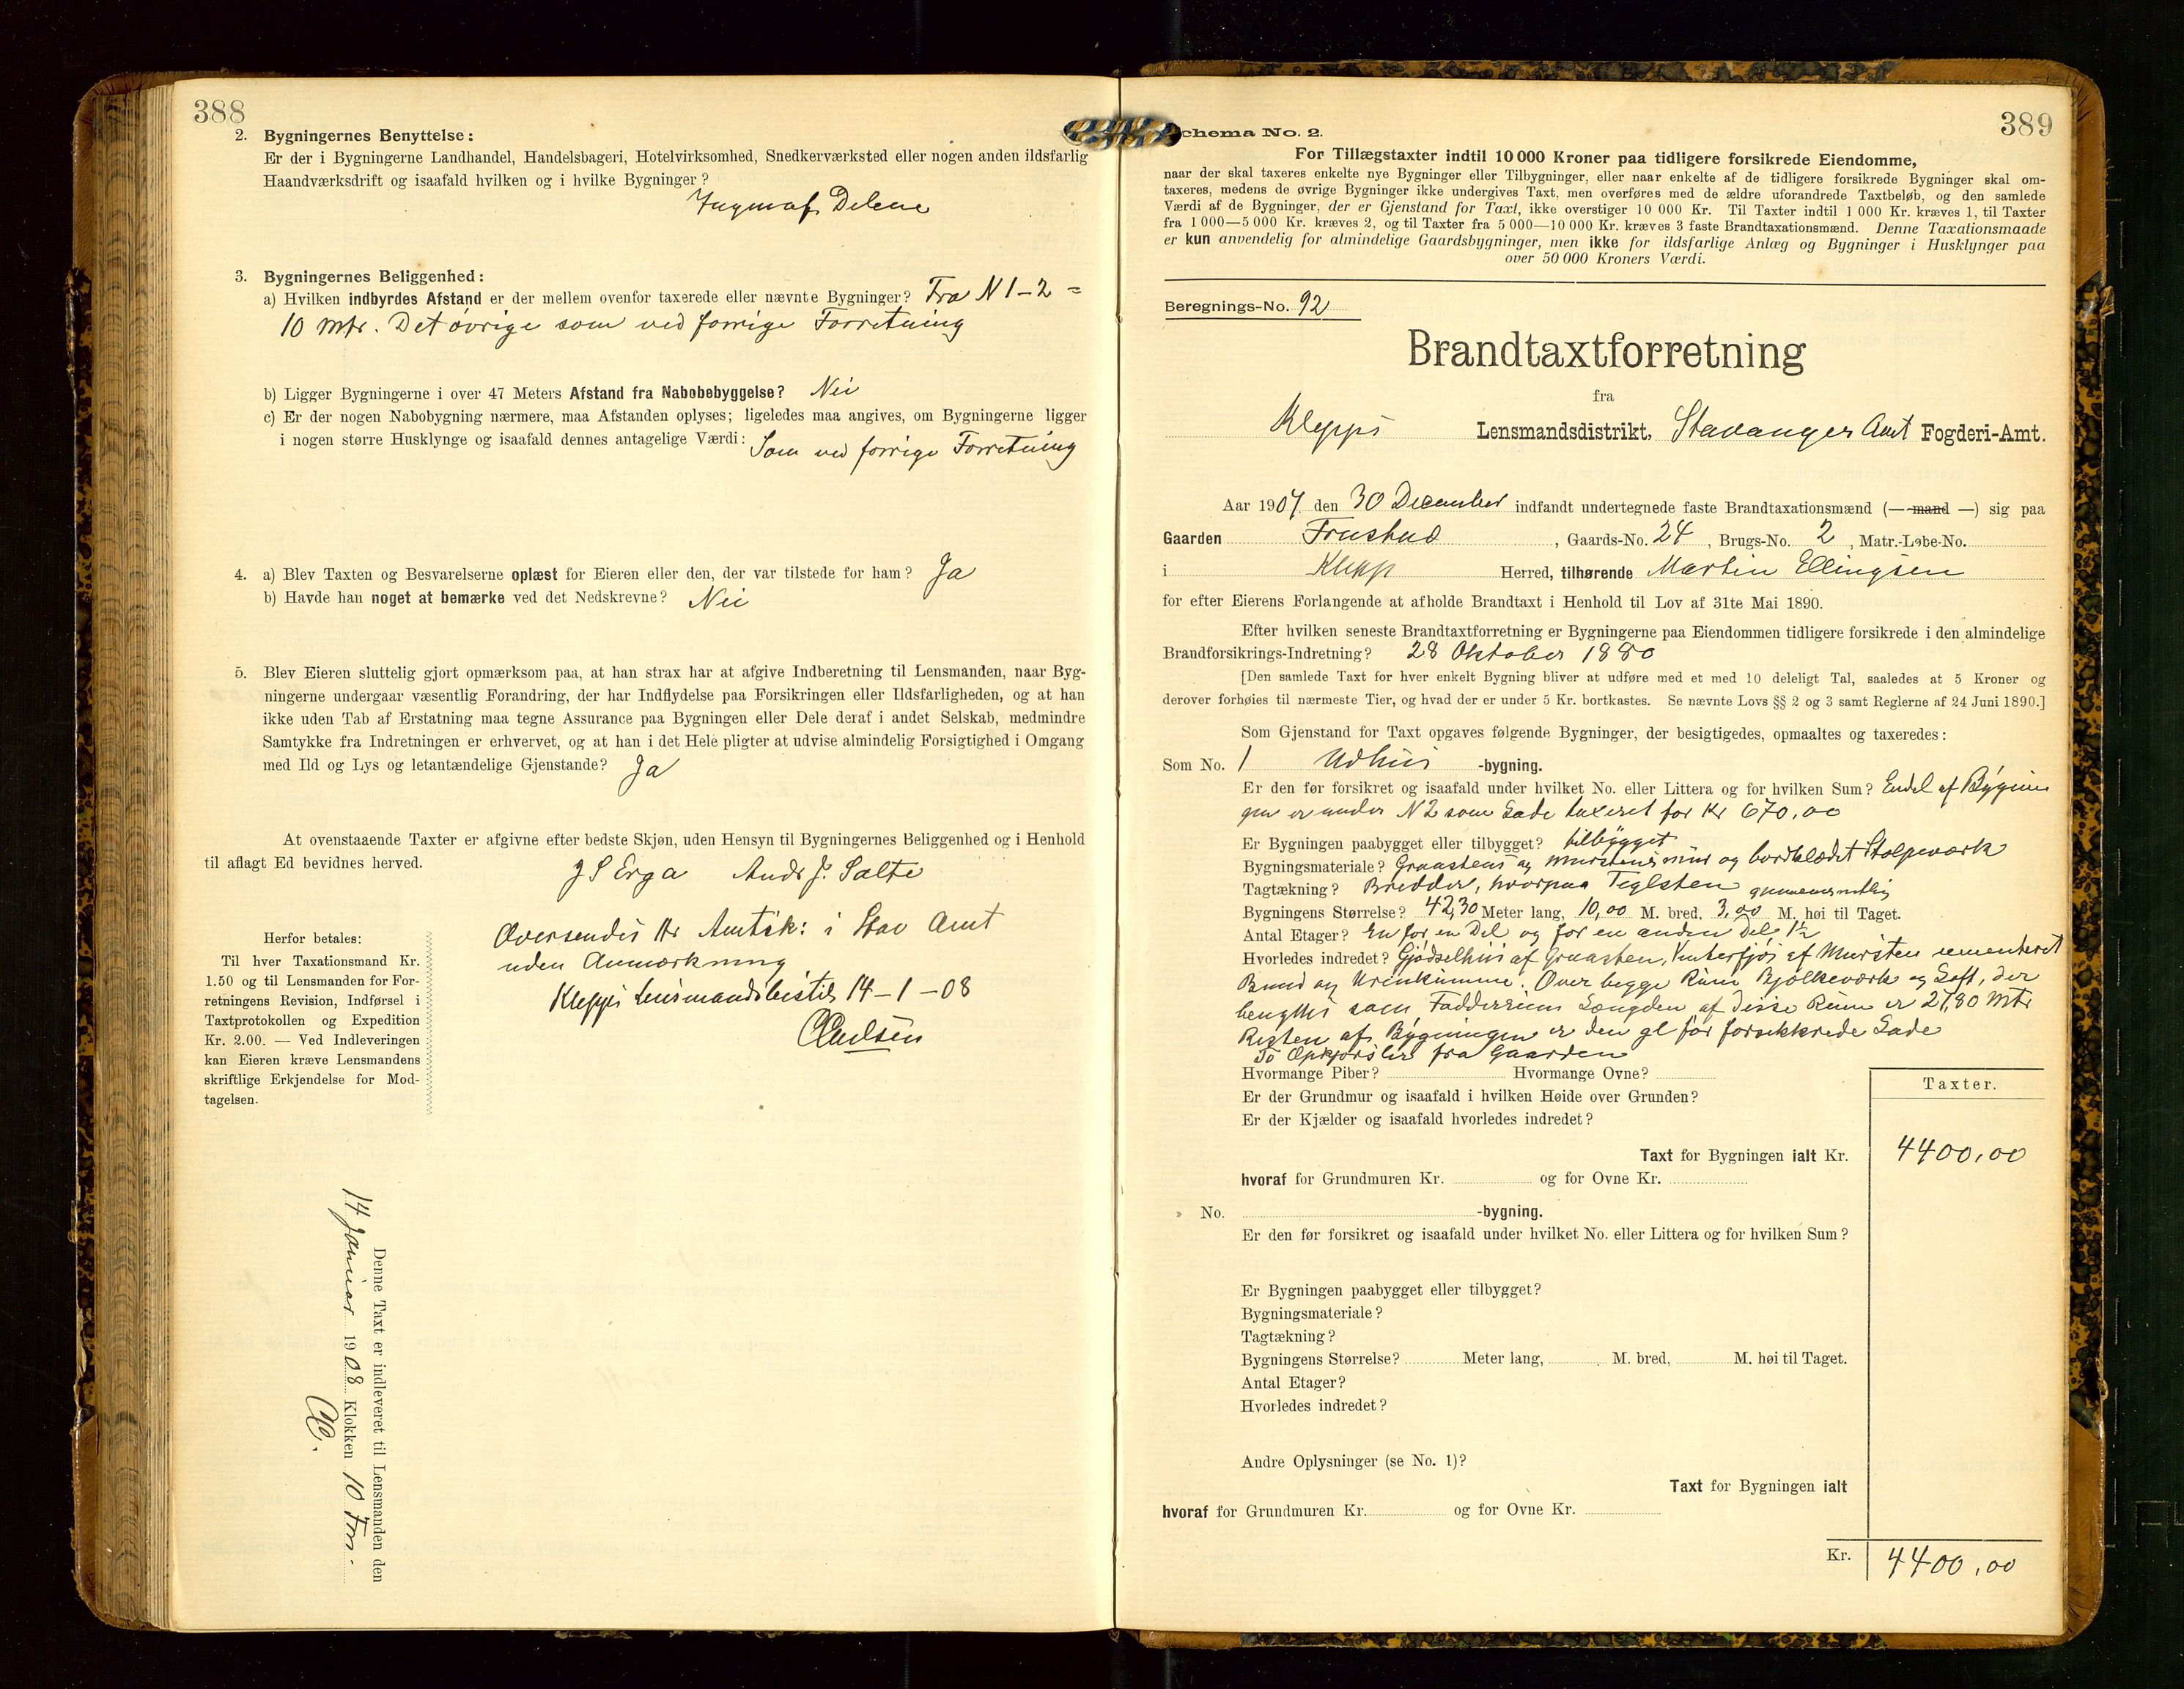 388
2. Bygningernes Benyttelse:
Er der i Bygningerne Landhandel, Handelsbageri, Hotelvirksomhed, Snedkerværksted eller nogen anden ildsfarlig
Haandværksdrift og isaafald hvilken og i hvilke Bygninger?
Ingen af Delene
3. Bygningernes Beliggenhed:
a) Hvilken indbyrdes Afstand er der mellem ovenfor taxerede eller nævnte Bygninger? Fra N 1 - 2 =
10 Mtr. Det øvrige som ved forrige Forretning
b) Ligger Bygningerne i over 47 Meters Afstand fra Nabobebyggelse? Nei
c) Er der nogen Nabobygning nærmere, maa Afstanden oplyses; ligeledes maa angives, om Bygningerne ligger
i nogen større Husklynge og isaafald dennes antagelige Værdi: Som ved forrige Forretning
4. a) Blev Taxten og Besvarelserne oplæst for Eieren eller den, der var tilstede for ham? Ja
b) Havde han noget at bemærke ved det Nedskrevne? Nei
5. Blev Eieren sluttelig gjort opmærksom paa, at han strax har at afgive Indberetning til Lensmanden, naar Byg-
ningerne undergaar væsentlig Forandring, der har Indflydelse paa Forsikringen eller Ildsfarligheden, og at han
ikke uden Tab af Erstatning maa tegne Assurance paa Bygningen eller Dele deraf i andet Selskab, medmindre
Samtykke fra Indretningen er erhvervet, og at han i det Hele pligter at udvise almindelig Forsigtighed i Omgang
med Ild og Lys og letantændelige Gjenstande? Ja
At ovenstaaende Taxter er afgivne efter bedste Skjøn, uden Hensyn til Bygningernes Beliggenhed og i Henhold
til aflagt Ed bevidnes herved.
J S Erga Andr J. Salte
Oversendes Hr Amtsk: i Stav Amt
uden Anmærkning
Klepps Lensmandsbestil 14-1-08
Herfor betales:
Til hver Taxationsmand Kr.
1.50 og til Lensmanden for For-
retningens Revision, Indførsel i
Taxtprotokollen og Expedition
Kr. 2.00. — Ved Indleveringen
kan Eieren kræve Lensmandens
skriftlige Erkjendelse for Mod-
tagelsen.
Denne Taxt er indleveret til Lensmanden den
14 Januar 1908 Klokken 10 Form.
389
Schema No. 2.
For Tillægstaxter indtil 10 000 Kroner paa tidligere forsikrede Eiendomme,
naar der skal taxeres enkelte nye Bygninger eller Tilbygninger, eller naar enkelte af de tidligere forsikrede Bygninger skal om-
taxeres, medens de øvrige Bygninger ikke undergives Taxt, men overføres med de ældre uforandrede Taxtbeløb, og den samlede
Værdi af de Bygninger, der er Gjenstand for Taxt, ikke overstiger 10 000 Kr. Til Taxter indtil 1 000 Kr. kræves 1, til Taxter
fra 1 000—5 000 Kr. kræves 2, og til Taxter fra 5 000—10 000 Kr. kræves 3 faste Brandtaxationsmænd. Denne Taxationsmaade
er kun anvendelig for almindelige Gaardsbygninger, men ikke for ildsfarlige Anlæg og Bygninger i Husklynger paa
over 50 000 Kroners Værdi.
Beregnings-No. 92
Brandtaxtforretning
fra
Klepps Lensmandsdistrikt, Stavanger Amt Fogderi-Amt.
Aar 1907 den 30 December indfandt undertegnede faste Brandtaxationsmænd (— mand —) sig paa
Gaarden Frustud, Gaards-No. 24, Brugs-No. 2, Matr.-Løbe-No.
i Klepp Herred, tilhørende Martin Ellingsen
for efter Eierens Forlangende at afholde Brandtaxt i Henhold til Lov af 31te Mai 1890.
Efter hvilken seneste Brandtaxtforretning er Bygningerne paa Eiendommen tidligere forsikrede i den almindelige
Brandforsikrings-Indretning? 28 Oktober 1880
[Den samlede Taxt for hver enkelt Bygning bliver at udføre med et med 10 deleligt Tal, saaledes at 5 Kroner og
derover forhøies til nærmeste Tier, og hvad der er under 5 Kr. bortkastes. Se nævnte Lovs §§ 2 og 3 samt Reglerne af 24 Juni 1890.]
Som Gjenstand for Taxt opgaves følgende Bygninger, der besigtigedes, opmaaltes og taxeredes:
Som No. 1 Udhus -bygning.
Er den før forsikret og isaafald under hvilket No. eller Littera og for hvilken Sum? Endel af Bygnin
gen er under N 2 som Lade taxeret for Kr 670,00
Er Bygningen paabygget eller tilbygget? tilbygget
Bygningsmateriale? Graastens og Murstensmur og bordklædet Stolpeværk
Tagtækning? Brædder, hvorpaa Teglsten gjennemsnitlig
Bygningens Størrelse? 42,30 Meter lang, 10,00 M. bred, 3,00 M. høi til Taget.
Antal Etager? En for en Del og for en anden Del 1½
Hvorledes indredet? Gjødselhus af Graasten, Vinterfjøs af Mursten cementeret
Bund og Urinkumme. Over begge Rum Bjælkeværk og Loft, der
benyttes som Fodderrum Længden af disse Rum er 27,80 Mtr
Resten af Bygningen er den gl før forsikkrede Lade
To Opkjørsler fra Gaarden
Hvormange Piber? Hvormange Ovne?
Er der Grundmur og isaafald i hvilken Høide over Grunden?
Er der Kjælder og isaafald hvorledes indredet?
Taxter.
Taxt for Bygningen ialt Kr. 4400,00
hvoraf for Grundmuren Kr. og for Ovne Kr.
» No. -bygning.
Er den før forsikret og isaafald under hvilket No. eller Littera og for hvilken Sum?
Er Bygningen paabygget eller tilbygget?
Bygningsmateriale?
Tagtækning?
Bygningens Størrelse? Meter lang, M. bred, M. høi til Taget.
Antal Etager?
Hvorledes indredet?
Andre Oplysninger (se No. 1)?
Taxt for Bygningen ialt
hvoraf for Grundmuren Kr. og for Ovne Kr.
Kr. 4400,00